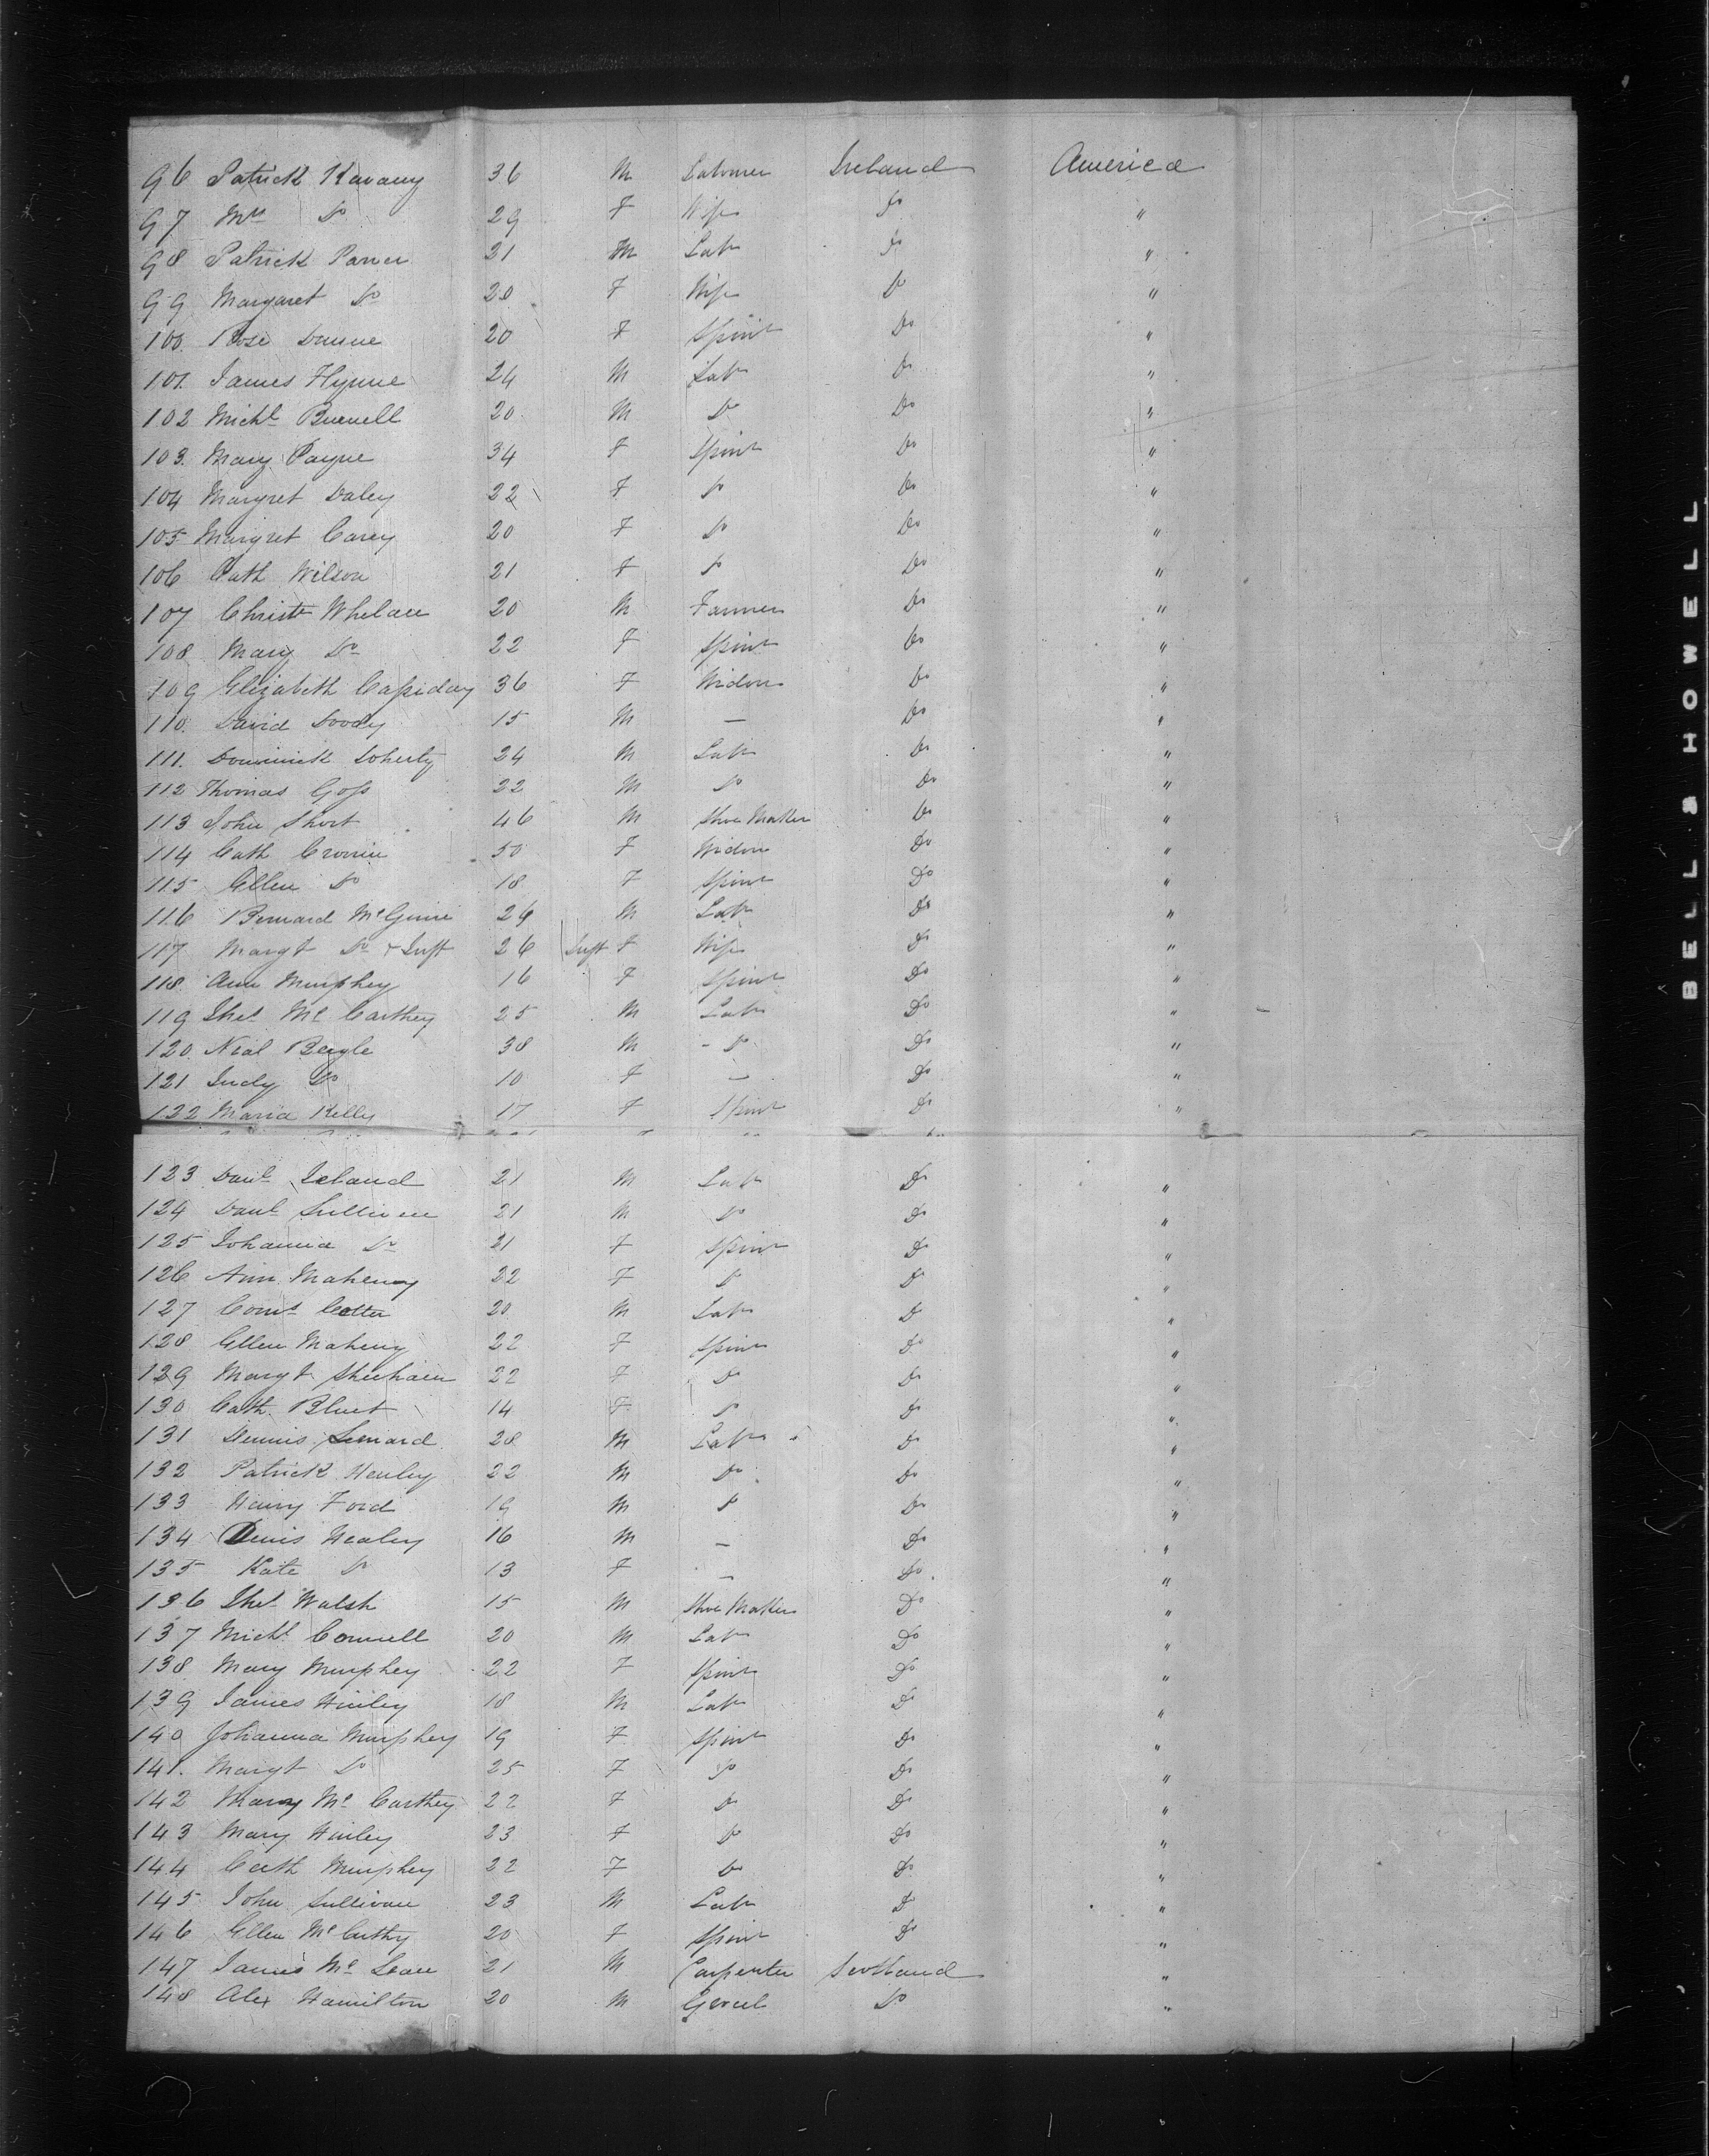 96 Patrick Kavany 36 M Labourer Ireland America
97 Mrs Do 29 F Wife Do "
98 Patrick 21 M Labr Do "
99 Margaret Do 20 F Wife Do "
100. Rose Dunne 20 F Spinr Do "
101. James Flynne 24 M Labr Do "
102 Michl Burnell 20 M Do Do "
103. Mary Payne 34 F Spinr Do "
104 Margret Daley 22 F Do Do "
105 Margret Carey 20 F Do Do "
106 Cath Wilson 21 F Do Do "
107 Christr Whelan 20 M Farmer Do "
108 Mary Do 22 F Spinr Do "
109 Elizabeth Cassiday 36 F Widow Do "
110. David Doody 15 M — Do "
111. Dominick Doherty 24 M Labr Do "
112 Thomas Goss 22 M Do Do "
113 John Short 46 M Shoe Maker Do "
114 Cath Cronin 50 F Widow Do "
115 Ellen Do 18 F Spinr Do "
116 Bernard McGuire 26 M Labr Do "
117 Margt Do & Inft 26 Inft F Wife Do "
118. Ann Murphey 16 F Spinr Do "
119 Thos Mc Carthey 25 M Labr Do "
120. Nial Beagle 38 M - Do Do "
121 Judy Do 10 F — Do "
122 Maria Kelly 17 F Spinr Do "
123 Danl Leland 21 M Labr Do "
124 Danl Sullivan 21 M Do Do "
125 Johanna Do 21 F Spinr Do "
126 Ann Maheny 22 F Do Do "
127 Corns Cotter 20 M Labr Do "
128 Ellen Maheny 22 F Spinr Do "
129 Margt Sheehan 22 F Do Do "
130 Cath. Bluet 14 F Do Do "
131 Dennis Lenard 28 M Labr Do "
132 Patrick Henley 22 M Do Do "
133 Henry Ford 19 M Do Do "
134 Denis Healey 16 M — Do "
135 Kate Do 13 F — Do "
136 Thos Walsh 15 M Shoe Maker Do "
137 Michl Connell 20 M Labr Do "
138 Mary Murphey 22 F Spinr Do "
139 James Hurley 18 M Labr Do "
140 Johanna Murphey 19 F Spinr Do "
141. Margt Do 25 F Do Do "
142 Mary Mc Carthey 22 F Do Do "
143 Mary Hurley 23 F Do Do "
144 Cath Murphey 22 F Do Do "
145 John Sullivan 23 M Labr Do "
146 Ellen McCarthy 20 F Spinr Do "
147 James Mc Lean 21 M Carpenter Scotland "
148 Alex Hamilton 20 M Do "
BELL & HOWELL